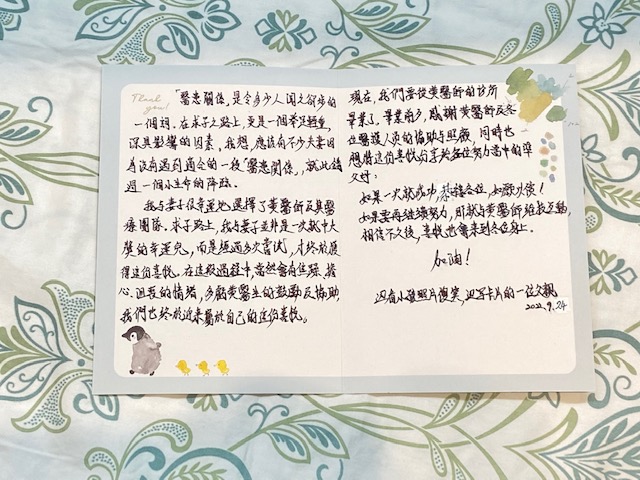 Thank you!
「醫患關係」是令多少人聞之卻步的
一個詞。在求子之路上，更是一個舉足輕重，
深具影響的因素。我想，應該有不少夫妻因
為沒有遇到適合的一段「醫患關係」，就此錯
過一個小生命的降臨。
我與妻子很幸運地選擇了黃醫師及其醫
療團隊。求子路上，我與妻子並非是一次就中大
獎的幸運兒，而是經過多次嘗試，才終於獲
得這份喜悅。在這段過程中，當然會有焦躁、擔
心、沮喪的情緒，多虧黃醫生的鼓勵及協助，
我們也終於迎來屬於自己的這份喜悅。
現在，我們要從黃醫師的診所
畢業了。畢業前夕，感謝黃醫師及各
位醫護人員的協助與照顧，同時也
想將這份喜悅分享於各位努力當中的準
父母：
如果一次就成功，恭禧各位，如願以償！
如果要再繼續努力，那就與黃醫師給
相信不久後，喜悅也會來到各位身上。
加油！
沒看小孩照片傻笑，迴寫卡片的一位父親
2022.9.24